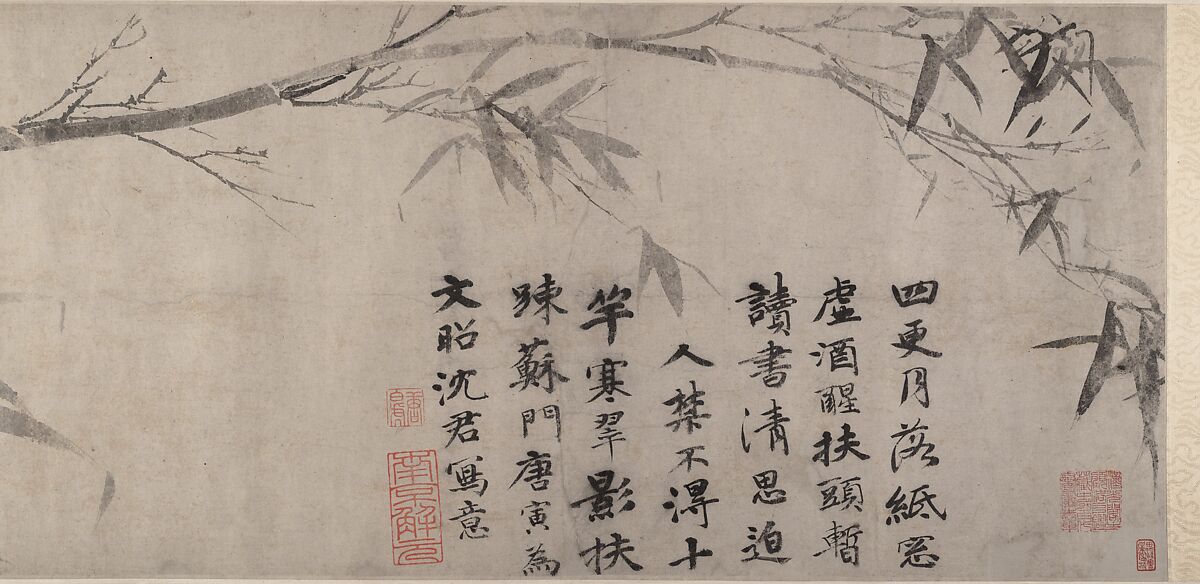 四更月落紙窓
虛酒醒扶頭暫
讀書清思迫
人禁不得十
竿寒翠影扶
踈蘇門唐寅為
文昭沈君寫意
唐白虎
南京解元